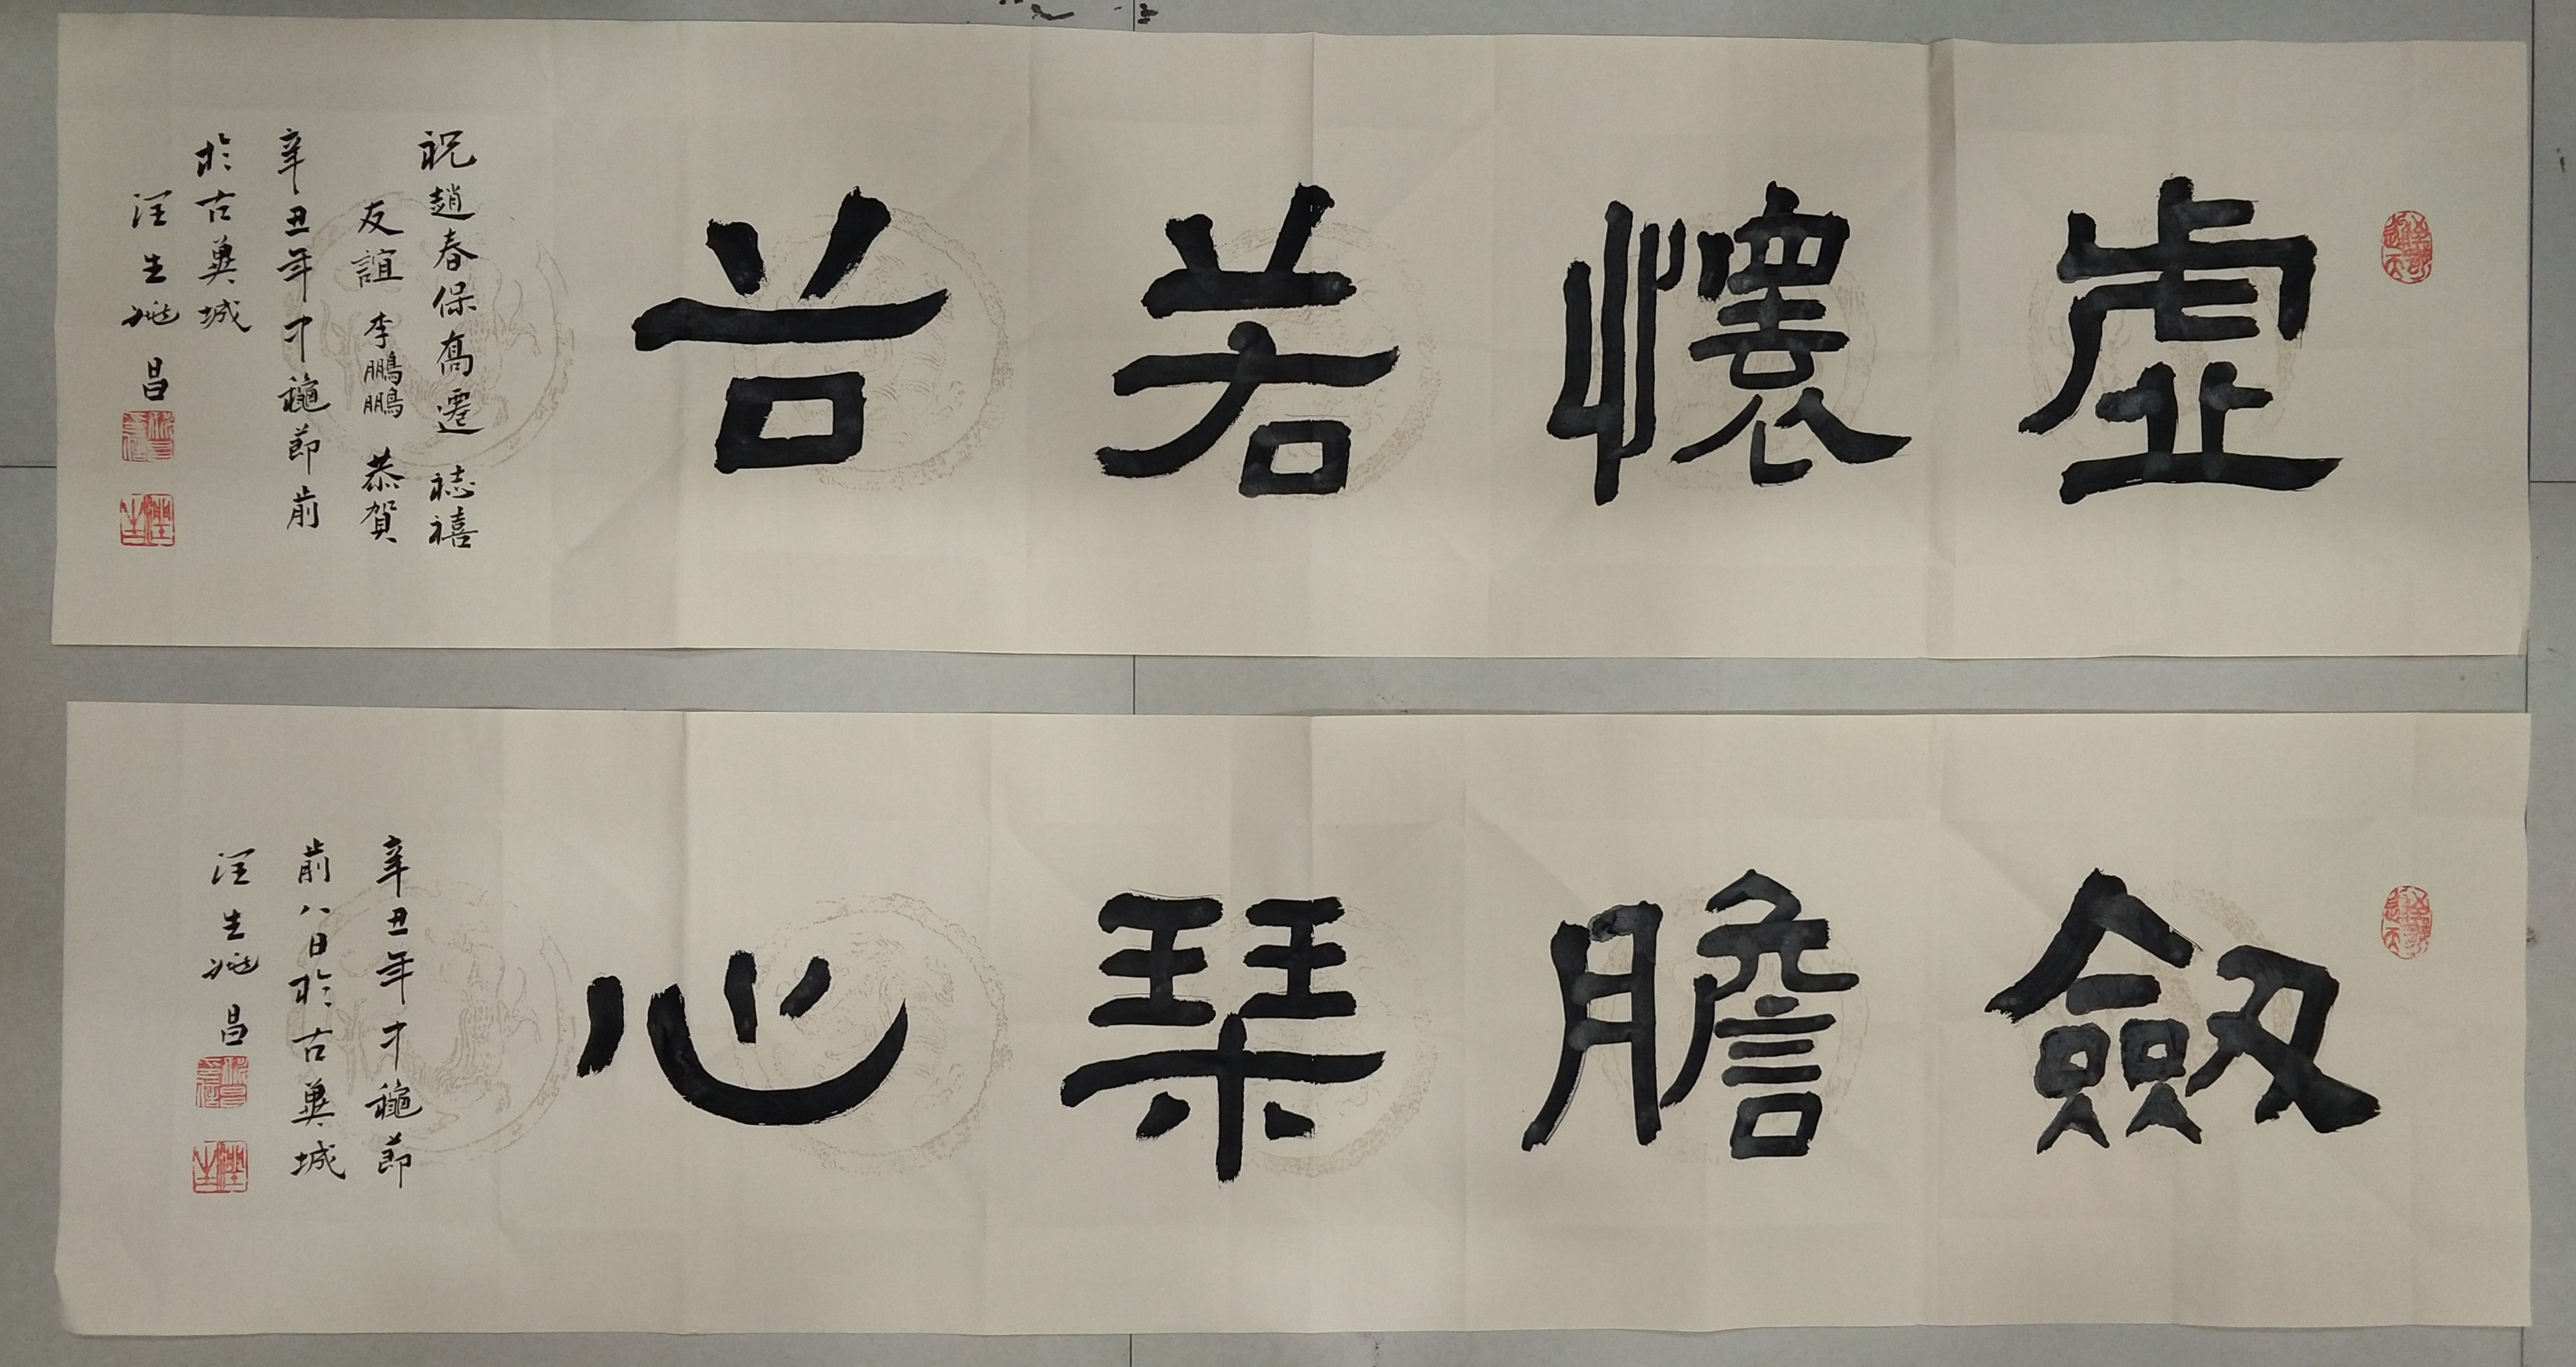 虛懷若谷
祝趙春保喬遷誌禧
友誼 李鵬鵬 恭賀
辛丑年中龝節前
於古冀城
潤生 昌
劒膽琴心
辛丑年中龝節
前八日於古冀城
潤生 昌